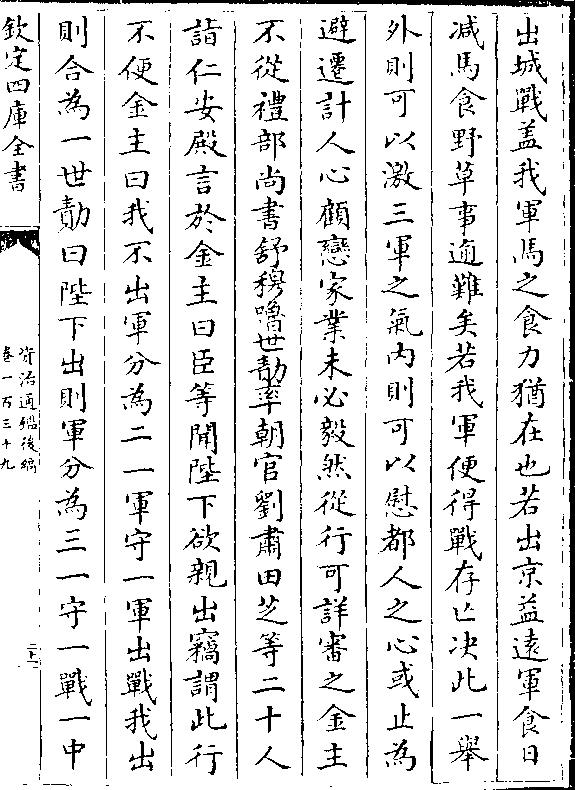 出城戰盖我軍馬之食力猶在也若出京益逺軍食日
减馬食野草事逾難矣若我軍便得戰存亡决此一舉
外則可以激三軍之氣内則可以慰都人之心或止為
避遷計人心顧戀家業未必毅然從行可詳審之金主
不從禮部尚書舒穆嚕世勣率朝官劉肅田芝等二十人
詣仁安殿言於金主曰臣等聞陛下欲親出竊謂此行
不便金主曰我不出軍分為二一軍守一軍出戰我出
則合為一世勣曰陛下出則軍分為三一守一戰一中
欽定四庫全書
資治通鑑後編
卷一百三十九